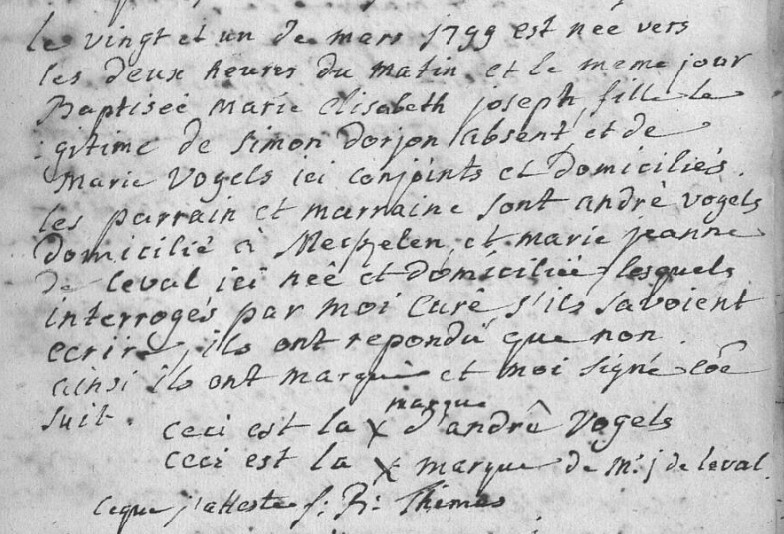 le vingt et un de mars 1799 est née vers
les deux heures du matin, et le meme jour
Baptiseé marie elisabeth joseph, fille le
gitime de simon dorjon absent, et de
marie Vogels ici conjoints et domiciliés.
les parrain et marraine sont andrè vogels
domicilié à Mechelen, et marie jeanne
de leval ici neê et domiciliêe, lesquels
interrogés par moi Curê s'ils savoient
ecrire, ils ont repondu que non.
ainsi ils ont marqué et moi signé cõe
suit.
ceci est la X marque d'andrê Vogels
ceci est la X marque de m: j de leval.
ceque j'atteste f: R: Thimas